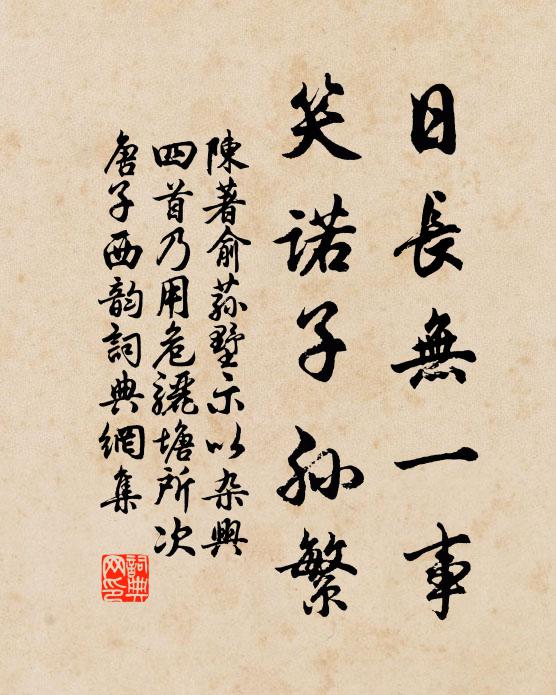 日長無一事
笑諾子孙繁
陳著俞蓀墅示以杂興
四首乃用危驪塘所次
唐子西韵詞典網集
詞典
网印